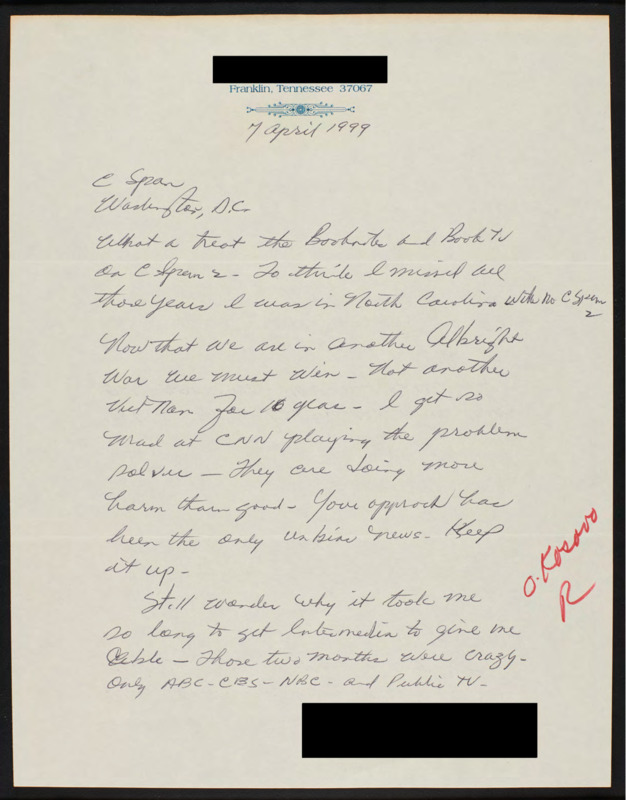 Franklin, Tennessee 37067
7 April 1999
C Span
Washington, D.C.
What a treat the Booknotes and Book TV
on C Span 2 - To think I missed all
those years I was in North Carolina with no C Span
2
Now that we are in another Albright
War we must win - Not another
Viet Nam for 10 years - I get so
mad at CNN playing the problem
solver - They are doing more
harm than good - Your approch has
been the only unbias news - Keep
it up -
Still wonder why it took me
so long to get Intermedia to give me
Cable - Those two months were crazy -
Only ABC - CBS - NBC - and Public TV -
O. Kosovo
R